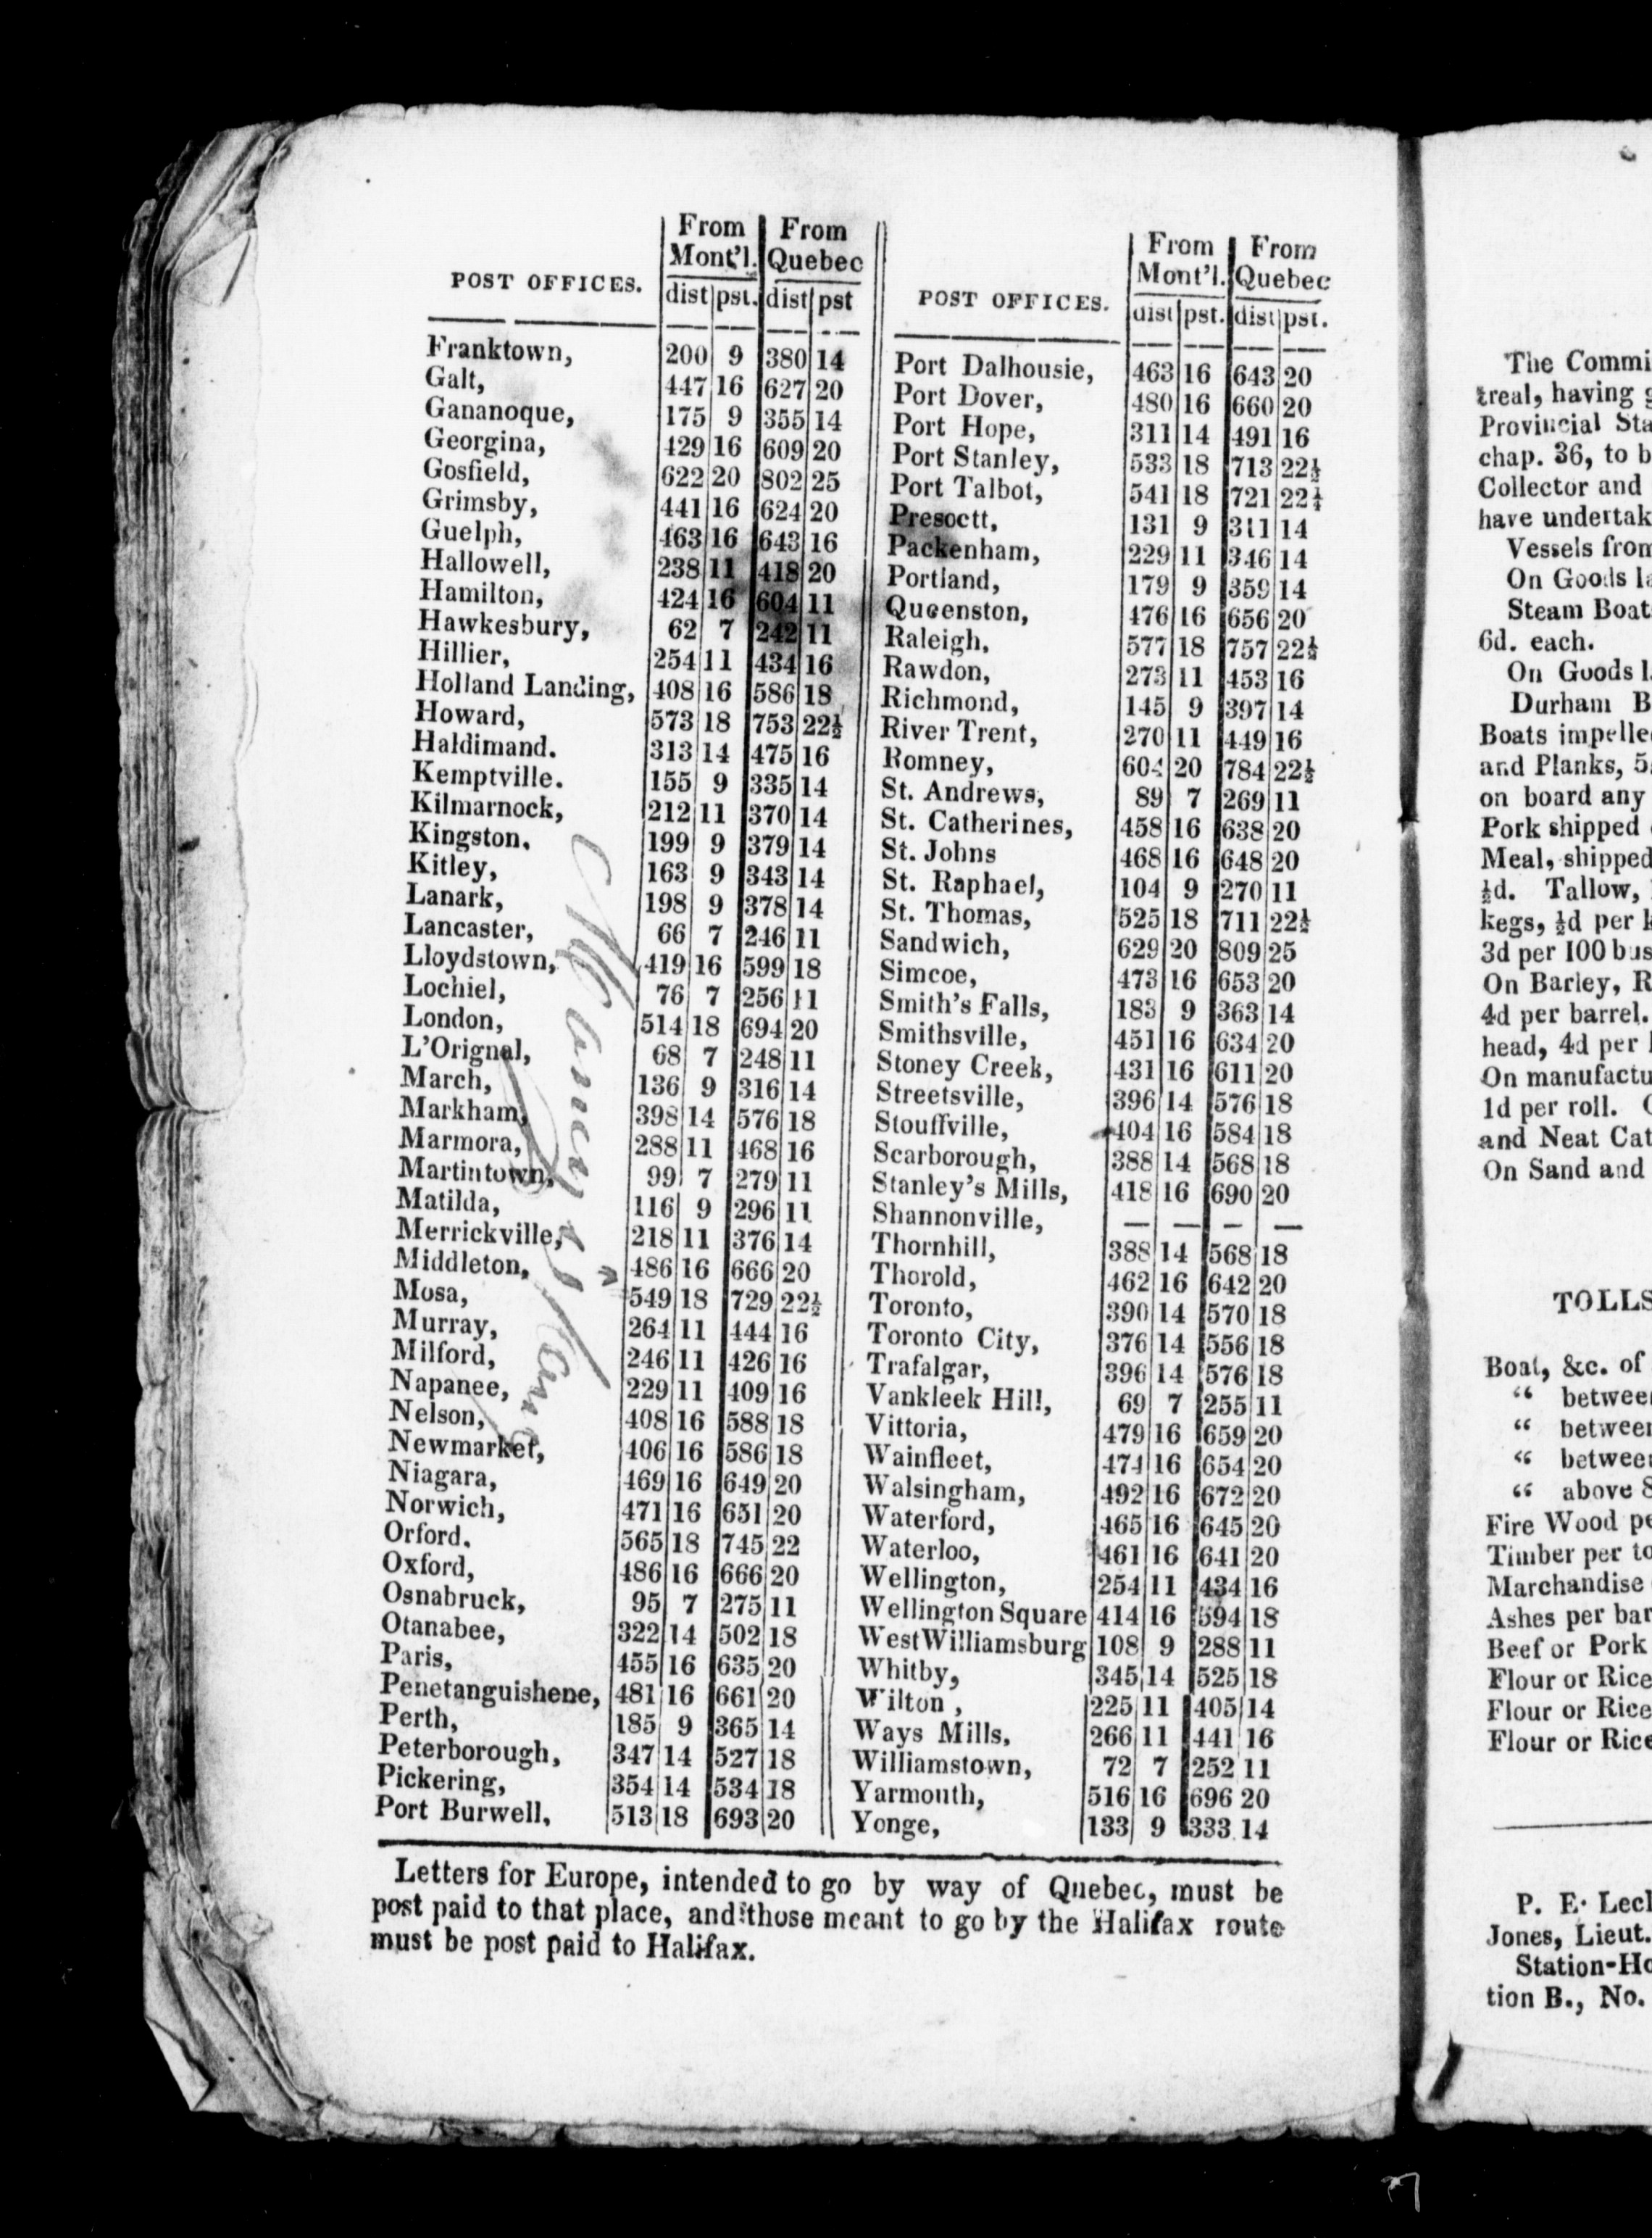 From From
Mont'l. Quebec
POST OFFICES. dist pst. dist pst
Franktown, 200 9 380 14
Galt, 447 16 627 20
Gananoque, 175 9 355 14
Georgina, 429 16 609 20
Gosfield, 622 20 802 25
Grimsby, 441 16 624 20
Guelph, 463 16 643 16
Hallowell, 238 11 418 20
Hamilton, 424 16 604 11
Hawkesbury, 62 7 242 11
Hillier, 254 11 434 16
Holland Landing, 408 16 586 18
Howard, 573 18 753 22½
Haldimand. 313 14 475 16
Kemptville. 155 9 335 14
Kilmarnock, 212 11 370 14
Kingston, 199 9 379 14
Kitley, 163 9 343 14
Lanark, 198 9 378 14
Lancaster, 66 7 246 11
Lloydstown, 419 16 599 18
Lochiel, 76 7 256 11
London, 514 18 694 20
L'Orignal, 68 7 248 11
March, 136 9 316 14
Markham, 398 14 576 18
Marmora, 288 11 468 16
Martintown, 99 7 279 11
Matilda, 116 9 296 11
Merrickville, 218 11 376 14
Middleton, 486 16 666 20
Mosa, 549 18 729 22½
Murray, 264 11 444 16
Milford, 246 11 426 16
Napanee, 229 11 409 16
Nelson, 408 16 588 18
Newmarket, 406 16 586 18
Niagara, 469 16 649 20
Norwich, 471 16 651 20
Orford. 565 18 745 22
Oxford, 486 16 666 20
Osnabruck, 95 7 275 11
Otanabee, 322 14 502 18
Paris, 455 16 635 20
Penetanguishene, 481 16 661 20
Perth, 185 9 365 14
Peterborough, 347 14 527 18
Pickering, 354 14 534 18
Port Burwell, 513 18 693 20
From From
Mont'l. Quebec
POST OFFICES. dist pst. dist pst.
Port Dalhousie, 463 16 643 20
Port Dover, 480 16 660 20
Port Hope, 311 14 491 16
Port Stanley, 533 18 713 22½
Port Talbot, 541 18 721 22½
Presoctt, 131 9 311 14
Packenham, 229 11 346 14
Portland, 179 9 359 14
Queenston, 476 16 656 20
Raleigh, 577 18 757 22½
Rawdon, 273 11 453 16
Richmond, 145 9 397 14
River Trent, 270 11 449 16
Romney, 604 20 784 22½
St. Andrews, 89 7 269 11
St. Catherines, 458 16 638 20
St. Johns 468 16 648 20
St. Raphael, 104 9 270 11
St. Thomas, 525 18 711 22½
Sandwich, 629 20 809 25
Simcoe, 473 16 653 20
Smith's Falls, 183 9 363 14
Smithsville, 451 16 634 20
Stoney Creek, 431 16 611 20
Streetsville, 396 14 576 18
Stouffville, 404 16 584 18
Scarborough, 388 14 568 18
Stanley's Mills, 418 16 690 20
Shannonville, — — — —
Thornhill, 388 14 568 18
Thorold, 462 16 642 20
Toronto, 390 14 570 18
Toronto City, 376 14 556 18
Trafalgar, 396 14 576 18
Vankleek Hill, 69 7 255 11
Vittoria, 479 16 659 20
Wainfleet, 474 16 654 20
Walsingham, 492 16 672 20
Waterford, 465 16 645 20
Waterloo, 461 16 641 20
Wellington, 254 11 434 16
Wellington Square 414 16 594 18
West Williamsburg 108 9 288 11
Whitby, 345 14 525 18
Wilton , 225 11 405 14
Ways Mills, 266 11 441 16
Williamstown, 72 7 252 11
Yarmouth, 516 16 696 20
Yonge, 133 9 333 14
Letters for Europe, intended to go by way of Quebec, must be
post paid to that place, and those meant to go by the Halifax route
must be post paid to Halifax.
The Commi
treal, having g
Provincial Sta
chap. 36, to b
Collector and
have undertak
Vessels from
On Goods la
Steam Boat
6d. each.
On Goods l
Durham B
Boats impelle
and Planks, 5
on board any
Pork shipped
Meal, shipped
½d. Tallow,
kegs, ½d per k
3d per 100 bus
On Barley, R
4d per barrel.
head, 4d per
On manufactu
1d per roll. C
and Neat Cat
On Sand and
TOLLS
Boat, &c. of
" between
" between
" between
" above 8
Fire Wood pe
Timber per to
Marchandise
Ashes per bar
Beef or Pork
Flour or Rice
Flour or Rice
Flour or Rice
P. E. Lecl
Jones, Lieut.
Station-Ho
tion B., No.